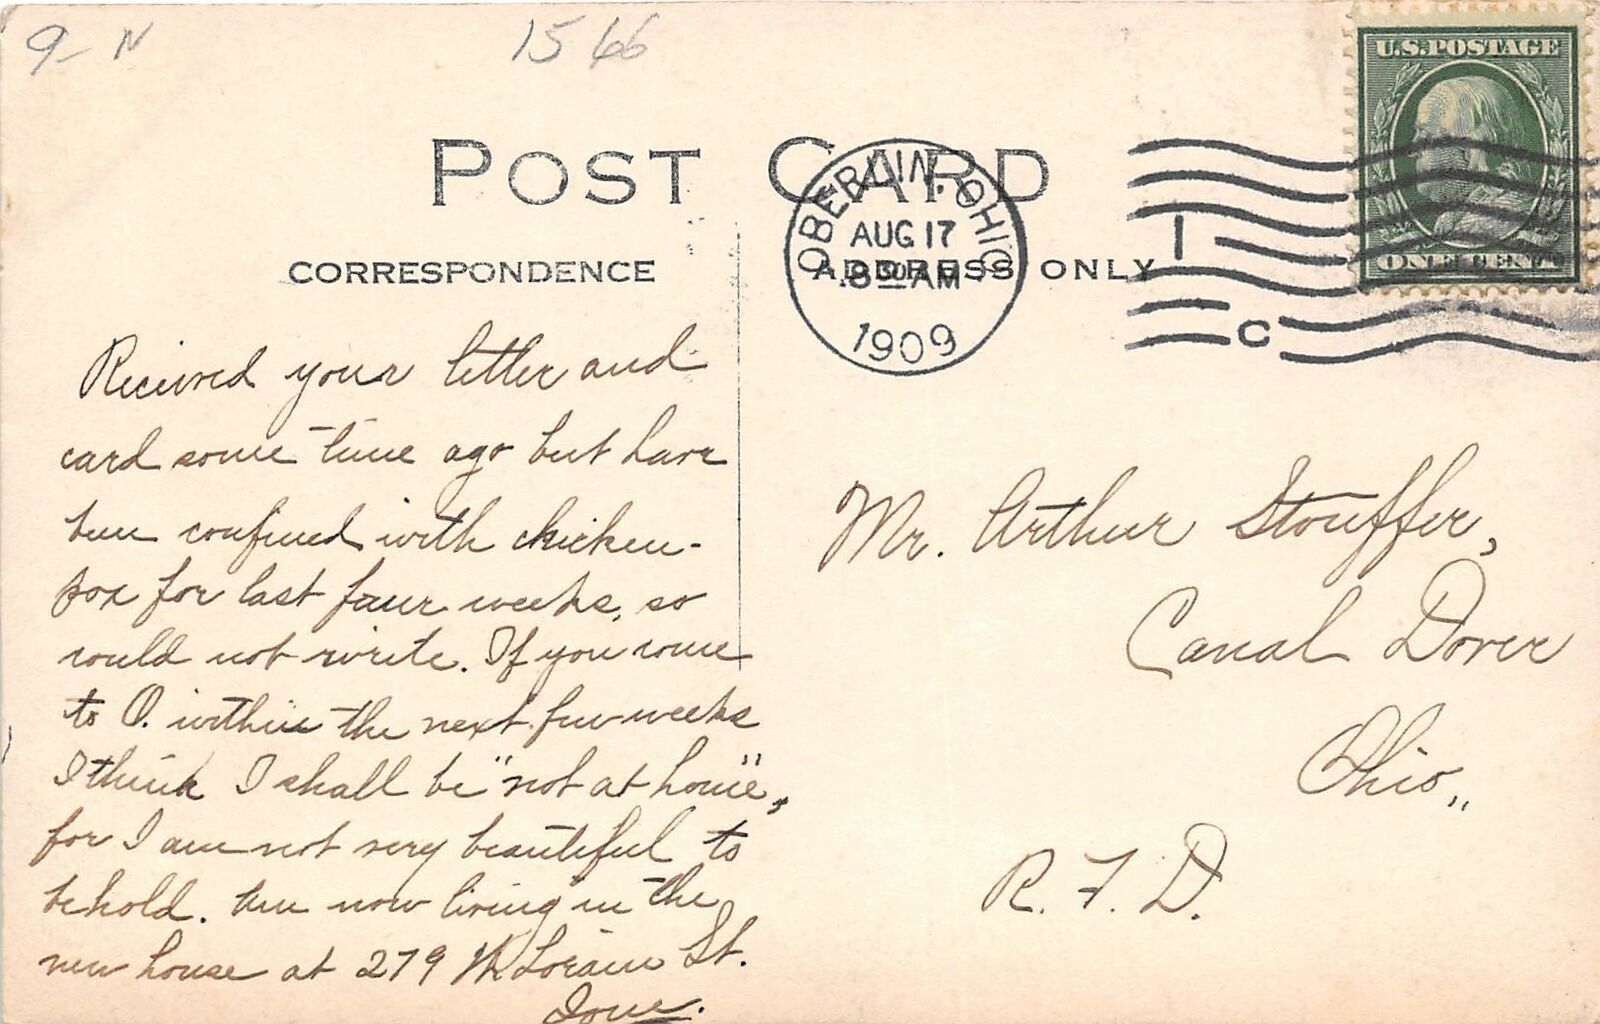 9- N
15 66
U.S. POSTAGE
POST CARD
OBERLIN, OHIO
AUG 17
8 30 AM
1909
1
C
ONE CENT
CORRESPONDENCE
ADDRESS ONLY
Received your letter and
card some time ago but have
been confined with chicken-
pox for last four weeks, so
could not write. If you come
to O. within the next few weeks
I think I shall be "not at home",
for I am not very beautiful to
behold. Am now living in the
new house at 279 W. Lorain St.
Ione.
Mr. Arthur Stouffer,
Canal Dover
Ohio,,
R. F. D.